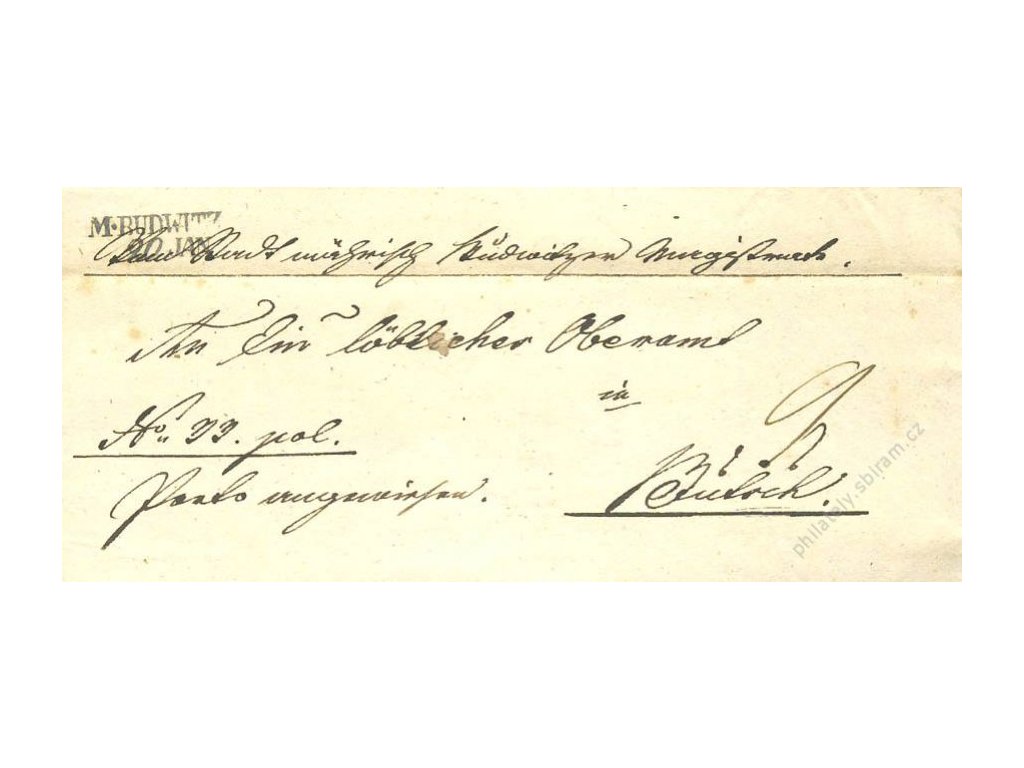 M·BUDWITZ
20 JAN
Vom Stadt mährisch Budwitzer Magistrate.
An Ein löbliches Oberamt
in
No. 33. pol.
Porto angewiesen.
philately.sbiram.cz